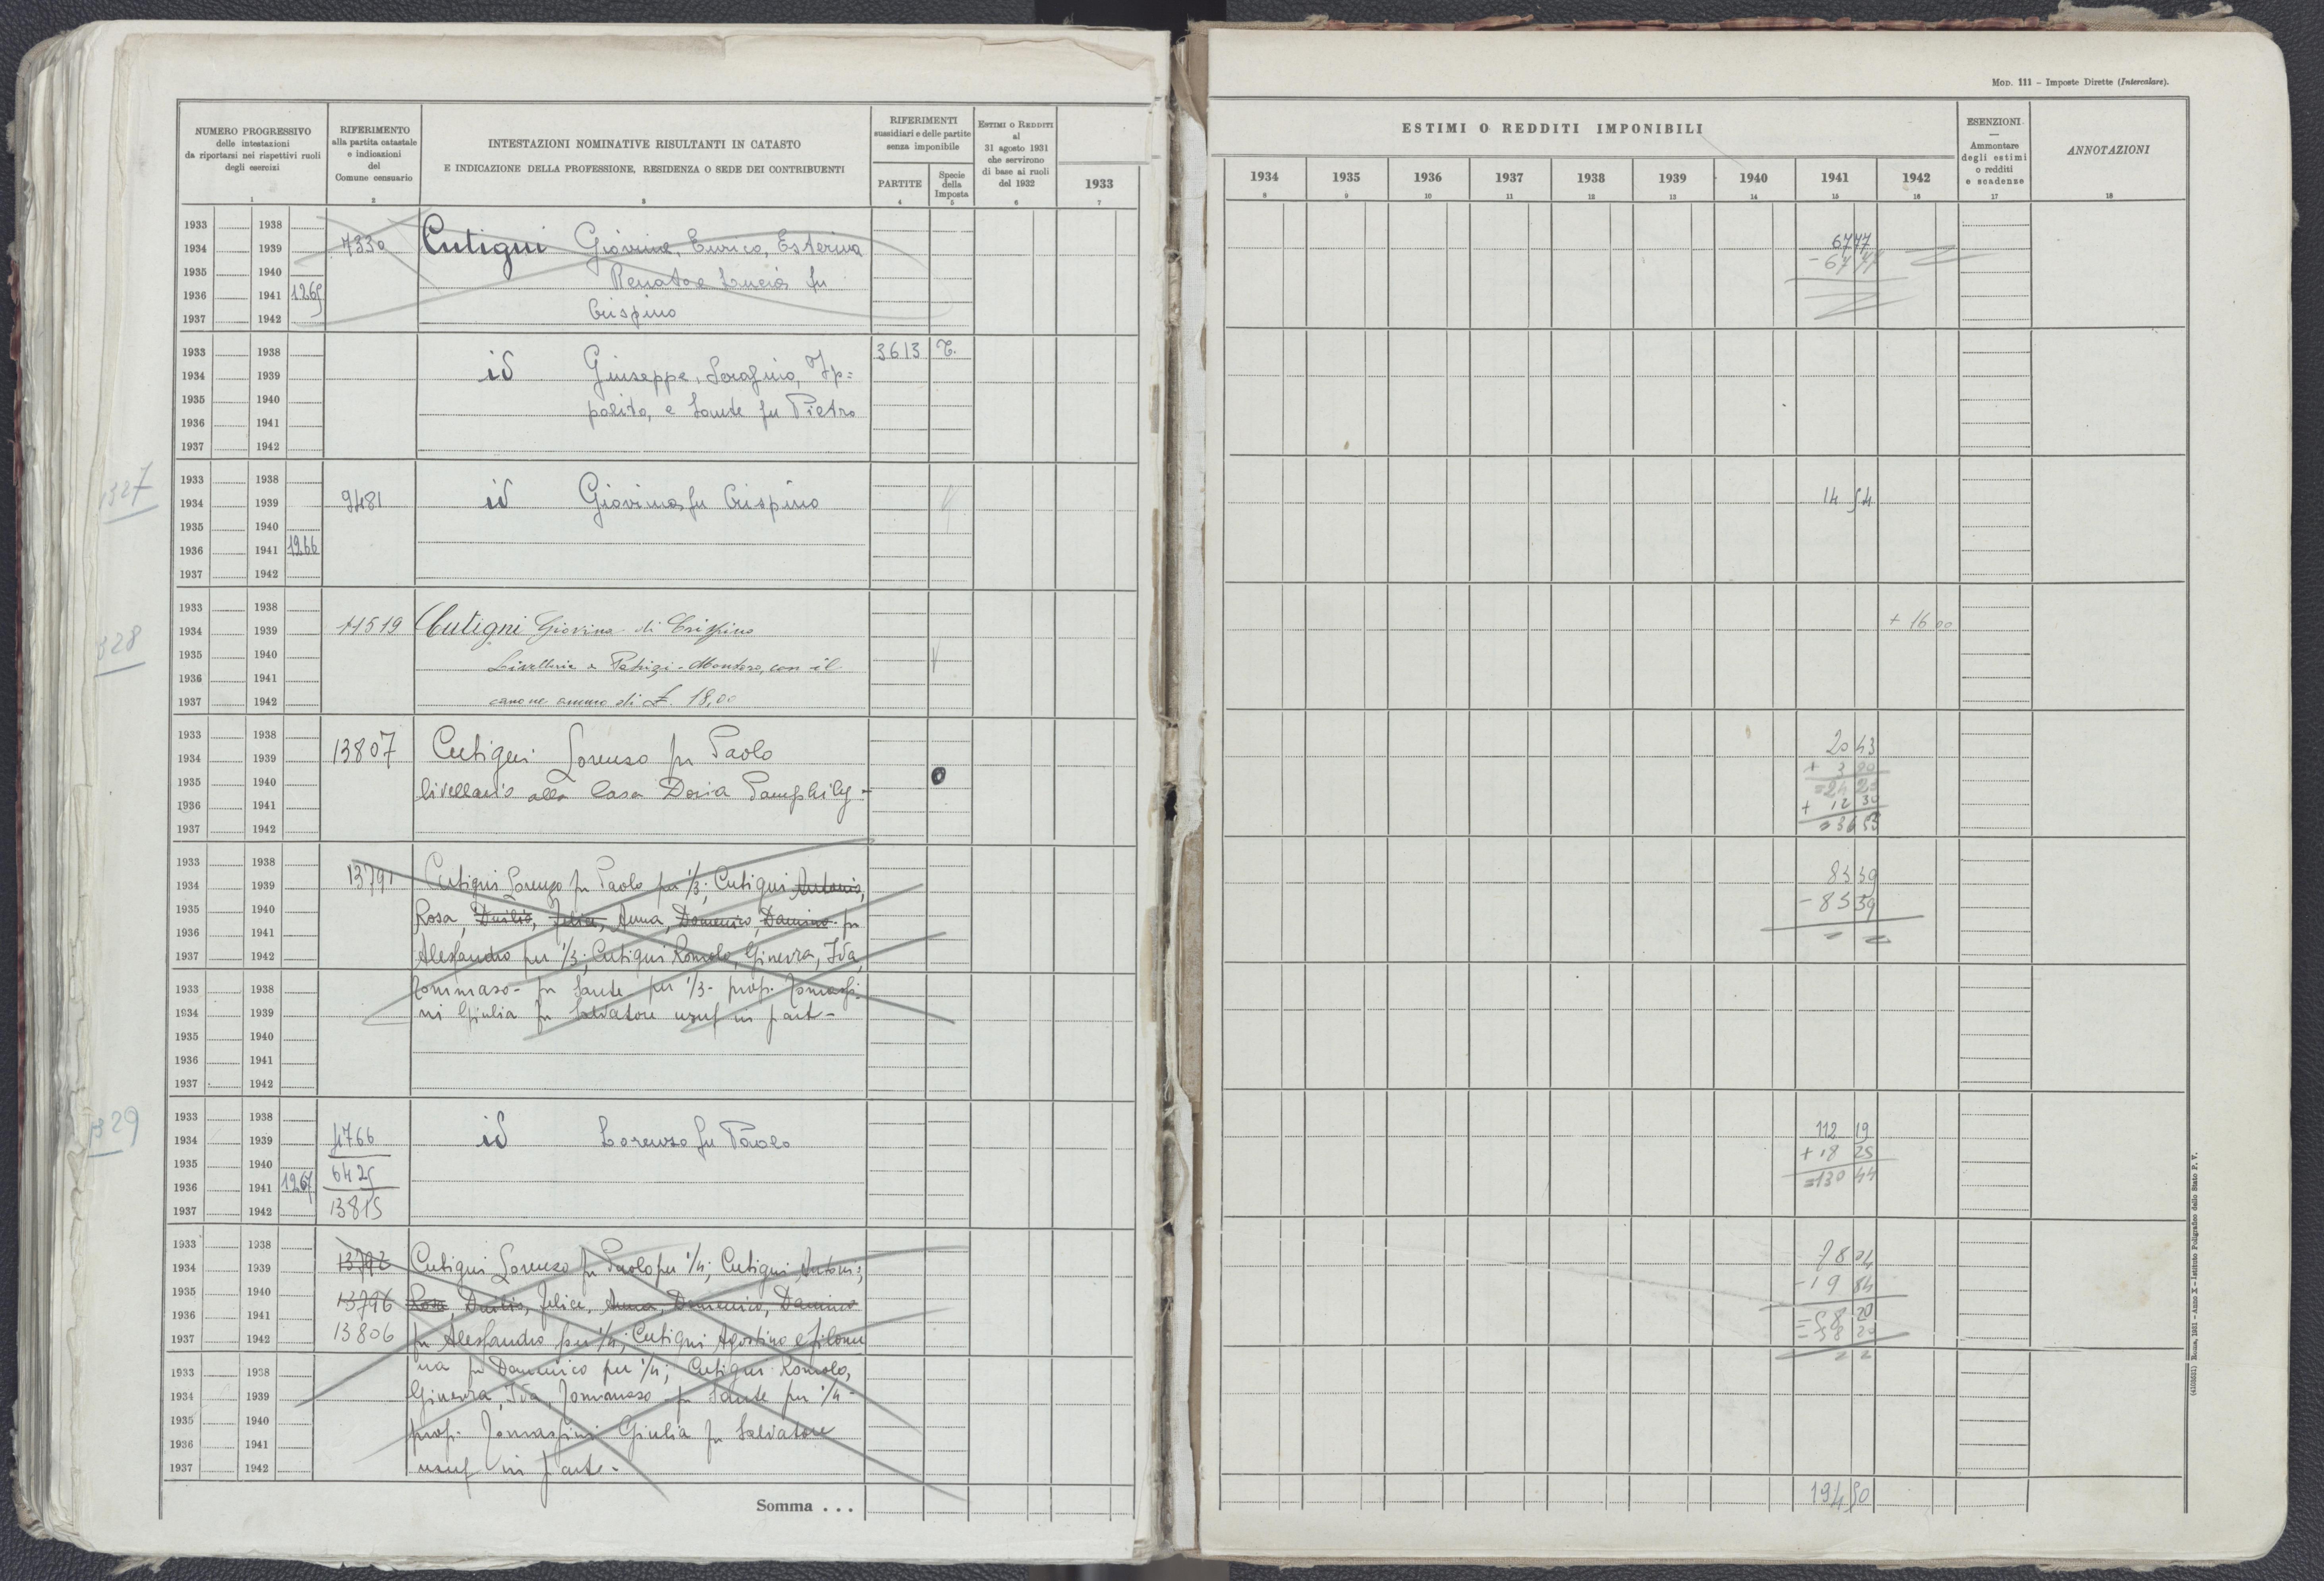 MOD. 111 – Imposte Dirette (Intercalare).
NUMERO PROGRESSIVO
delle intestazioni
da riportarsi nei rispettivi ruoli
degli esercizi
RIFERIMENTO
alla partita catastale
e indicazioni
del
Comune censuario
INTESTAZIONI NOMINATIVE RISULTANTI IN CATASTO
E INDICAZIONE DELLA PROFESSIONE, RESIDENZA O SEDE DEI CONTRIBUENTI
RIFERIMENTI
sussidiari e delle partite
senza imponibile
PARTITE
Specie
della
Imposta
ESTIMI O REDDITI
al
31 agosto 1931
che servirono
di base ai ruoli
del 1932
1933
ESTIMI O REDDITI IMPONIBILI
1934 1935 1936 1937 1938 1939 1940 1941 1942
ESENZIONI
—
Ammontare
degli estimi
o redditi
e scadenze
ANNOTAZIONI
1 2 3 4 5 6 7 8 9 10 11 12 13 14 15 16 17 18
1933 1938
1934 1939 7330 Cutigni Giovina, Enrico, Esterina 67 77
1935 1940 Renato e Lucia fu - 67 77
1936 1941 1265
1937 1942 Crispino
1933 1938 3613 T.
1934 1939 id Giuseppe, Serafino, Ip=
1935 1940 polito, e Sante fu Pietro
1936 1941
1937 1942
327
1933 1938
1934 1939 9481 id Giovina fu Crispino 14 54
1935 1940
1936 1941 1266
1937 1942
328
1933 1938
1934 1939 11519 Cutigni Giovina di Crispino + 16 00
1935 1940 Livellaria a Patrizi-Montoro, con il
1936 1941
1937 1942 canone annuo di £. 18,00
1933 1938 13807 Cutigni Lorenzo fu Paolo 20 43
1934 1939
1935 1940 livellario alla Casa Doria Pamphily -
1936 1941 + 12 30
1937 1942 = 36 53
1933 1938
1934 1939 13791 Cutigni Lorenzo fu Paolo per 1/3; Cutigni Antonio, 83 59
1935 1940 Rosa, Duilio, Felice, Anna, Domenico, Damino fu - 83 59
1936 1941
1937 1942 Alessandro per 1/3; Cutigni Romolo, Ginevra, Ida,
1933 1938 Tommaso - fu Sante per 1/3 - prop. Tomassi-
1934 1939 ni Giulia fu Salvatore usuf in part -
1935 1940
1936 1941
1937 1942
329
1933 1938
1934 1939 4766 id Lorenzo fu Paolo 112 19
1935 1940 6425 + 18 25
1936 1941 1267 = 130 44
1937 1942 13815
1933 1938
1934 1939 13792 Cutigni Lorenzo fu Paolo per 1/4; Cutigni Antoni; 78 04
1935 1940 13796 Rosa, Duilio, Felice, Anna, Domenico, Damino - 19 84
1936 1941 = 58 20
1937 1942 13806 fu Alessandro per 1/4; Cutigni Agostino e Filome = 58 20
1933 1938 na fu Domenico per 1/4; Cutigni Romolo,
1934 1939 Ginevra, Ida, Tommaso fu Sante per 1/4 -
1935 1940 prop. Tomassini Giulia fu Salvatore
1936 1941
1937 1942 usuf in part. -
Somma . . . 194 50
(4103521) Roma, 1931 – Anno X – Istituto Poligrafico dello Stato P. V.